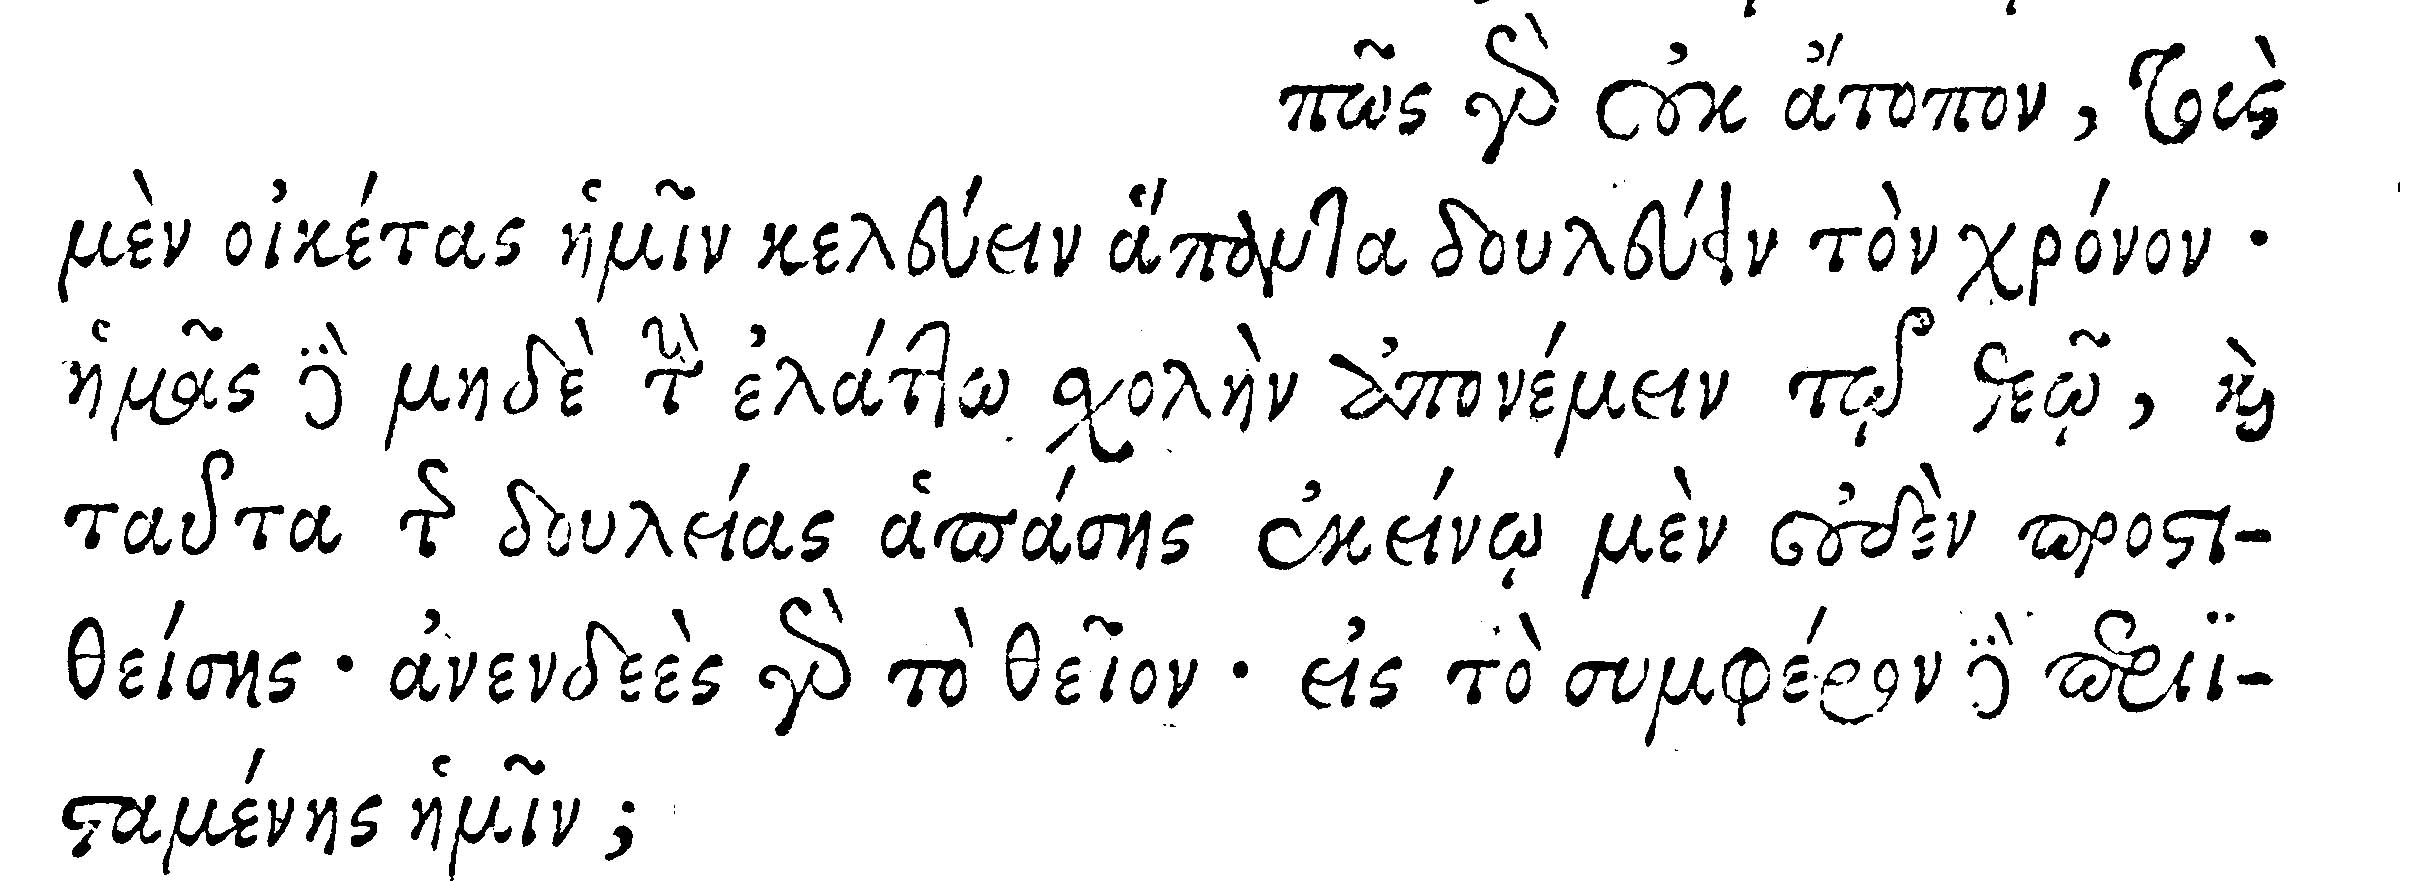 πῶς γὰρ οὐκ ἄτοπον, τοὺς
μὲν οἰκέτας ἡμῖν κελεύειν ἅπαντα δουλεύειν τὸν χρόνον·
ἡμᾶς δὲ μηδὲ τὴν ἐλάττω σχολὴν ἀπονέμειν τῷ θεῷ, καὶ
ταῦτα τῆς δουλείας ἁπάσης ἐκείνῳ μὲν οὐδὲν προστι-
θείσης· ἀνενδεὲς γὰρ τὸ θεῖον· εἰς τὸ συμφέρον δὲ περιϊ-
σταμένης ἡμῖν;